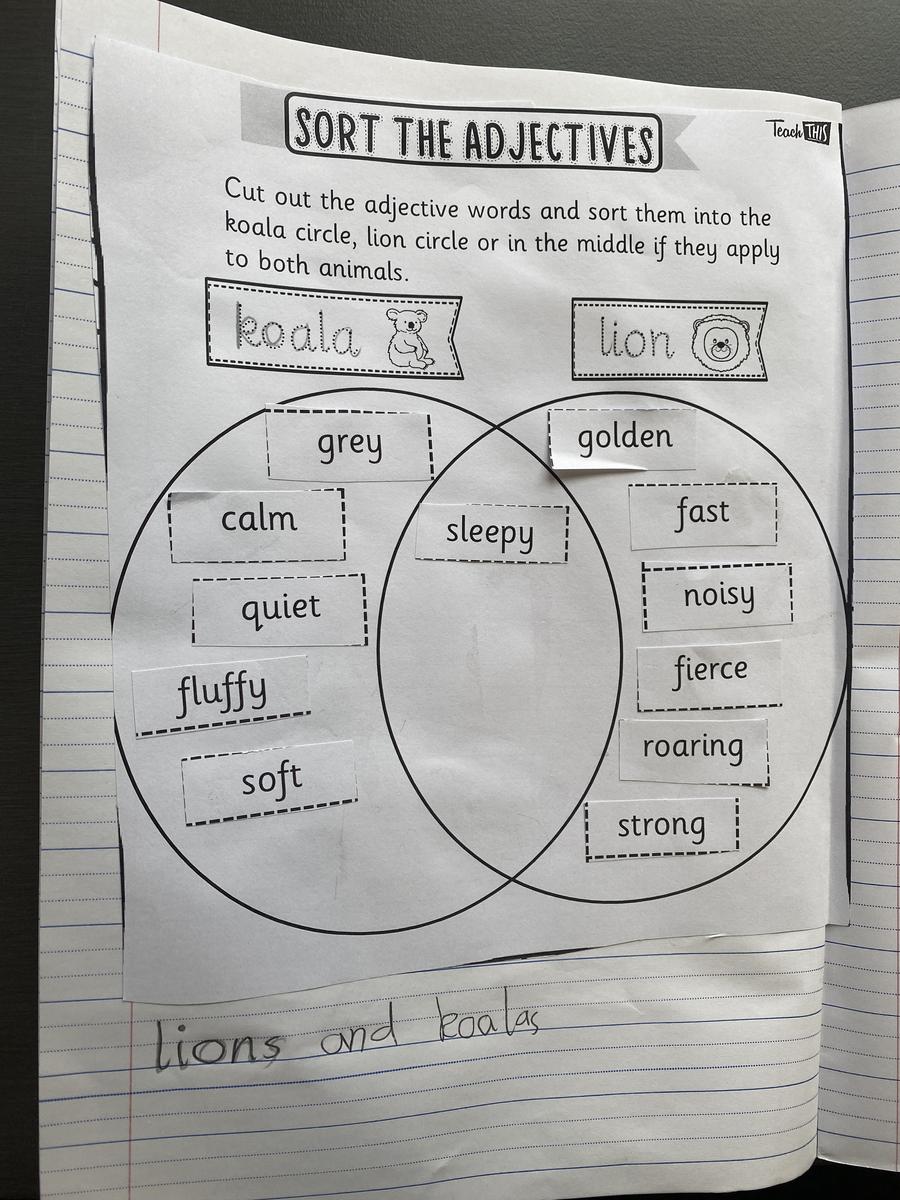 SORT THE ADJECTIVES
Teach THIS
Cut out the adjective words and sort them into the
koala circle, lion circle or in the middle if they apply
to both animals.
koala
lion
grey
calm
quiet
fluffy
soft
sleepy
golden
fast
noisy
fierce
roaring
strong
lions and koalas